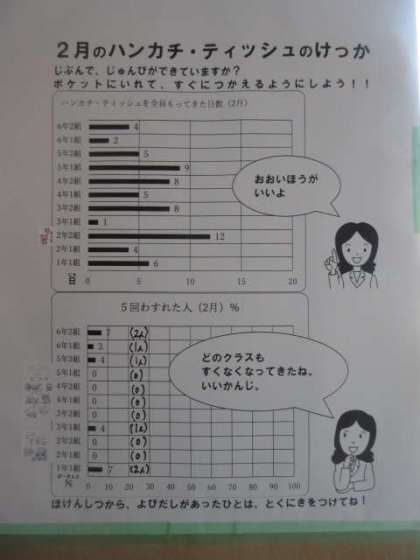 2月のハンカチ・ティッシュのけっか
じぶんで、じゅんびができていますか?
ポケットにいれて、すぐにつかえるようにしよう!!
ハンカチ・ティッシュを全員もってきた日数(2月)
6年2組 4
6年1組 2
5年2組 5
5年1組 9
4年2組 8
4年1組 5
3年2組 8
3年1組 1
2年2組 12
2年1組 4
1年1組 6
日 0 5 10 15 20
おおいほうが
いいよ
5回わすれた人(2月)%
6年2組 7 (2人)
6年1組 3 (1人)
5年2組 4 (1人)
5年1組 0 (0)
4年2組 0 (0)
4年1組 0 (0)
3年2組 0 (0)
3年1組 4 (1人)
2年2組 0 (0)
2年1組 0 (0)
1年1組 7 (2人)
% 0 10 20 30 40 50 60 70 80 90 100
どのクラスも
すくなくなってきたね。
いいかんじ。
ほけんしつから、よびだしがあったひとは、とくにきをつけてね!